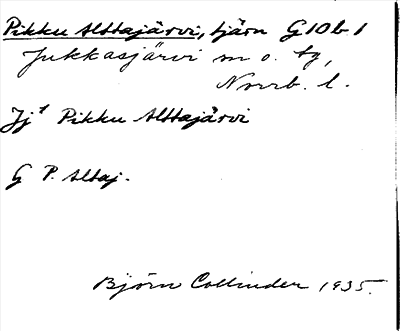 Pikku Alttajärvi, tjärn G10b1
Jukkasjärvi m o. tg,
Norrb. l.
Jj⁴ Pikku Alttajärvi
G P. Altaj.
Björn Collinder 1935.